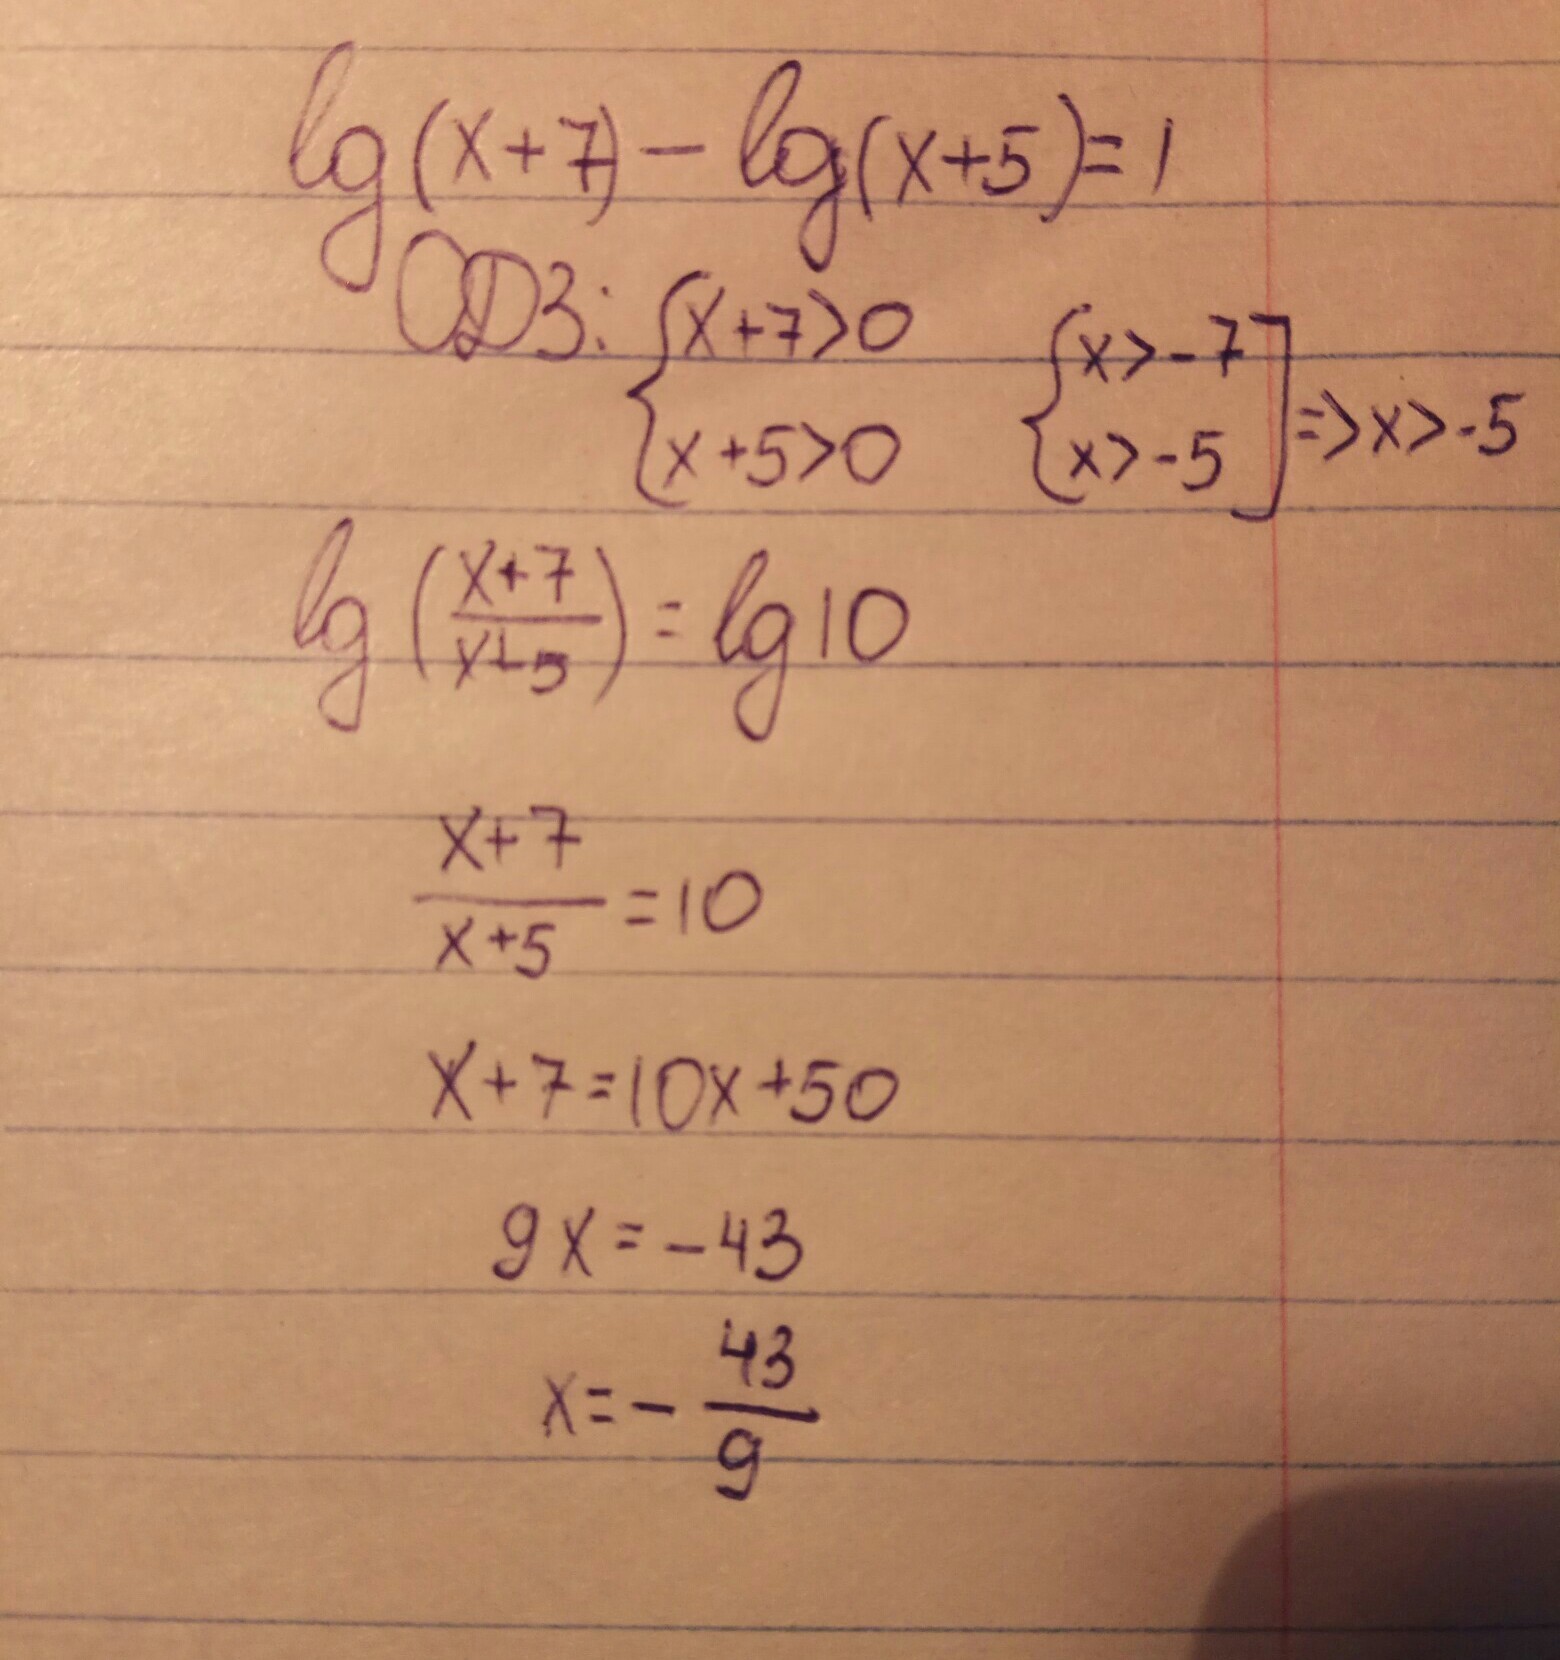 lg(x+7) - lg(x+5) = 1
ОДЗ: {x+7>0 {x>-7]
{x+5>0 {x>-5] => x>-5
lg((x+7)/(x+5)) = lg10
(x+7)/(x+5) = 10
x+7=10x+50
9x=-43
x=-43/9